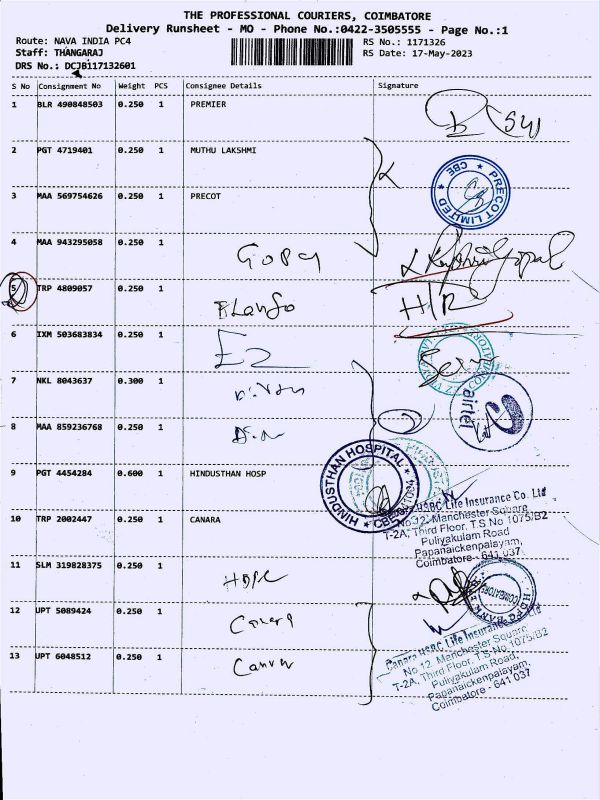 THE PROFESSIONAL COURIERS, COIMBATORE
Delivery Runsheet - MO - Phone No.:0422-3505555 - Page No.:1
Route: NAVA INDIA PC4 RS No.: 1171326
Staff: THANGARAJ RS Date: 17-May-2023
DRS No.: DCJB117132601
S No Consignment No Weight PCS Consignee Details Signature
1 BLR 490848503 0.250 1 PREMIER
2 PGT 4719401 0.250 1 MUTHU LAKSHMI
3 MAA 569754626 0.250 1 PRECOT
PRECOT LIMITED ★ CBE ★
4 MAA 943295058 0.250 1 Gopa
5 TRP 4809057 0.250 1 H/R
6 IXM 503683834 0.250 1
7 NKL 8043637 0.300 1
airtel
8 MAA 859236768 0.250 1
9 PGT 4454284 0.600 1 HINDUSTHAN HOSP
HINDUSTHAN HOSPITAL ★ CBE
10 TRP 2002447 0.250 1 CANARA
HSBC Life Insurance Co. Ltd
No.12, Manchester Square
T-2A, Third Floor, T.S No 1075/B2
Puliyakulam Road
Papanaickenpalayam,
Coimbatore - 641 037
11 SLM 319828375 0.250 1 HDFC
HDFC BANK
COIMBATORE
12 UPT 5089424 0.250 1
13 UPT 6048512 0.250 1
Canara HSBC Life Insurance
No 12, Manchester Square
T-2A, Third Floor, T.S No 1075/B2
Puliyakulam Road,
Papanaickenpalayam,
Coimbatore - 641 037